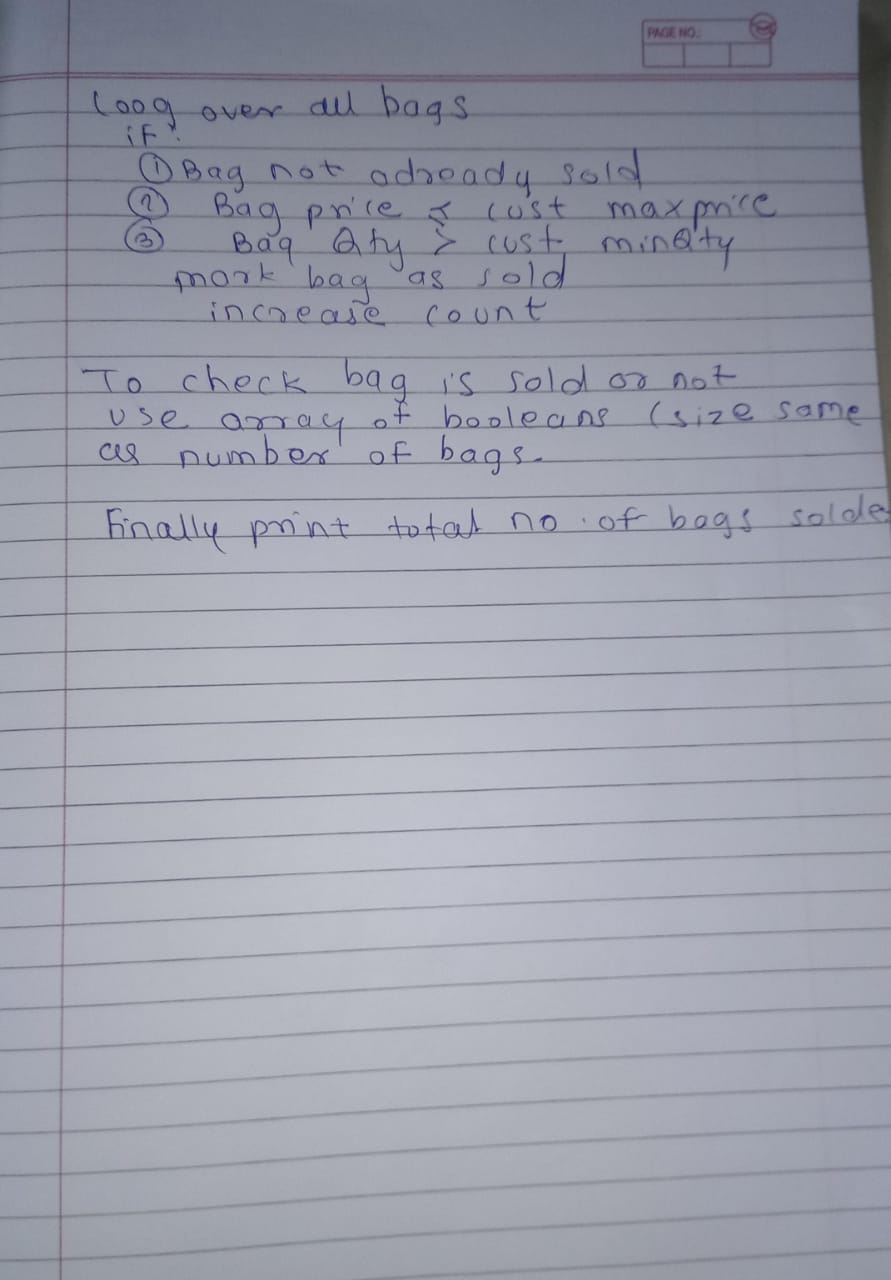 PAGE NO.:
Loog over all bags
if:
① Bag not adready sold
② Bag price < cust maxprice
③ Bag Qty > cust minQty
mark bag as sold
increase count
To check bag is sold or not
use array of booleans (size same
as number of bags.
Finally print total no. of bags solde